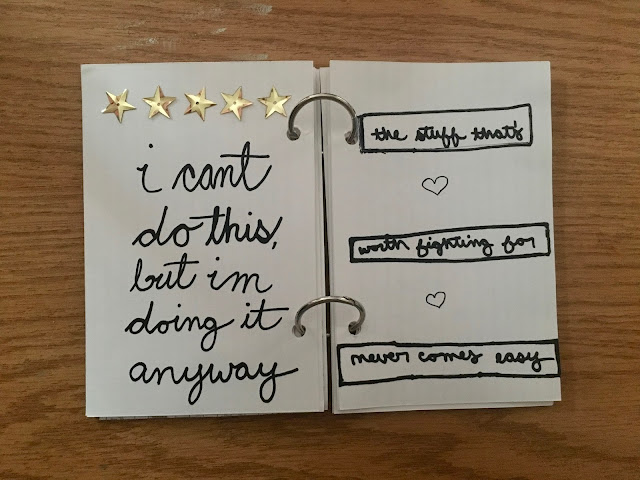 i cant
do this,
but im
doing it
anyway
the stuff that's
worth fighting for
never comes easy